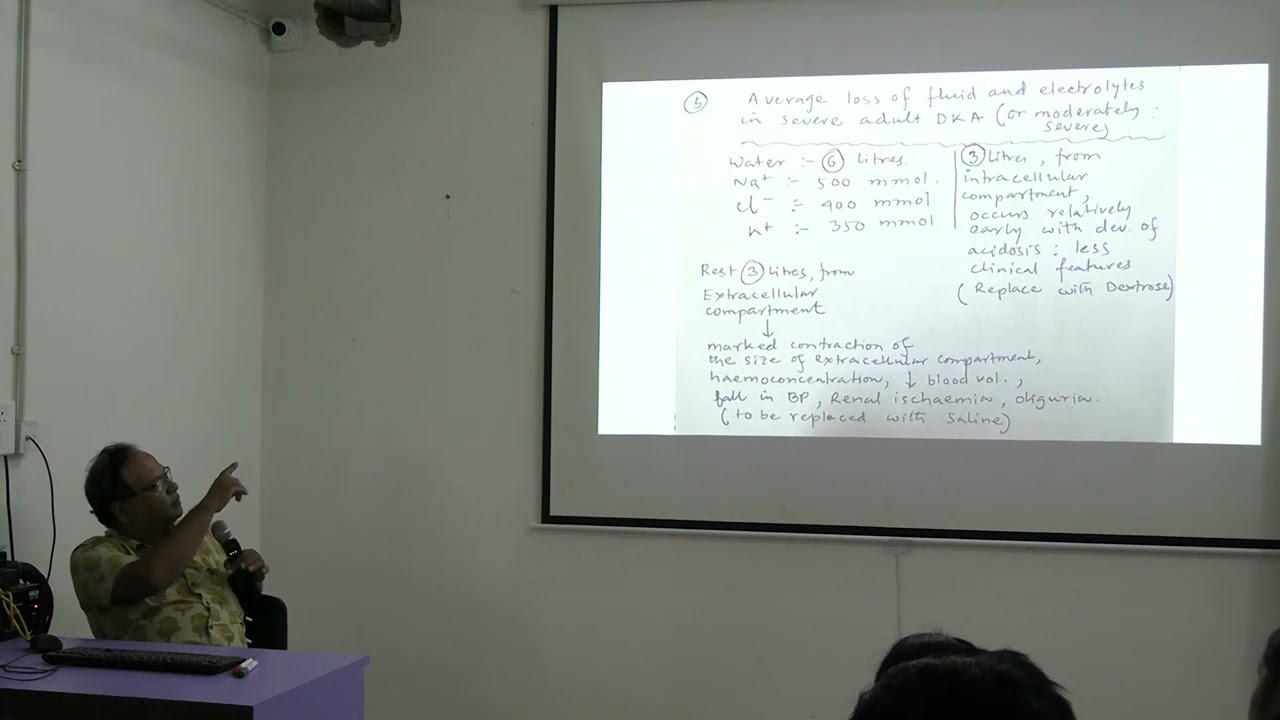 5
Average loss of fluid and electrolytes
in severe adult DKA (or moderately
severe)
Water :- 6 Litres.
Na+ :- 500 mmol.
Cl- :- 400 mmol
K+ :- 350 mmol
3 Litres, from
intracellular
compartment,
occurs relatively
early with dev. of
acidosis : less
clinical features
(Replace with Dextrose)
Rest 3 Litres, from
Extracellular
compartment
↓
marked contraction of
the size of extracellular compartment,
haemoconcentration, ↓ blood vol.,
fall in BP, Renal ischaemia, oliguria.
(to be replaced with Saline)